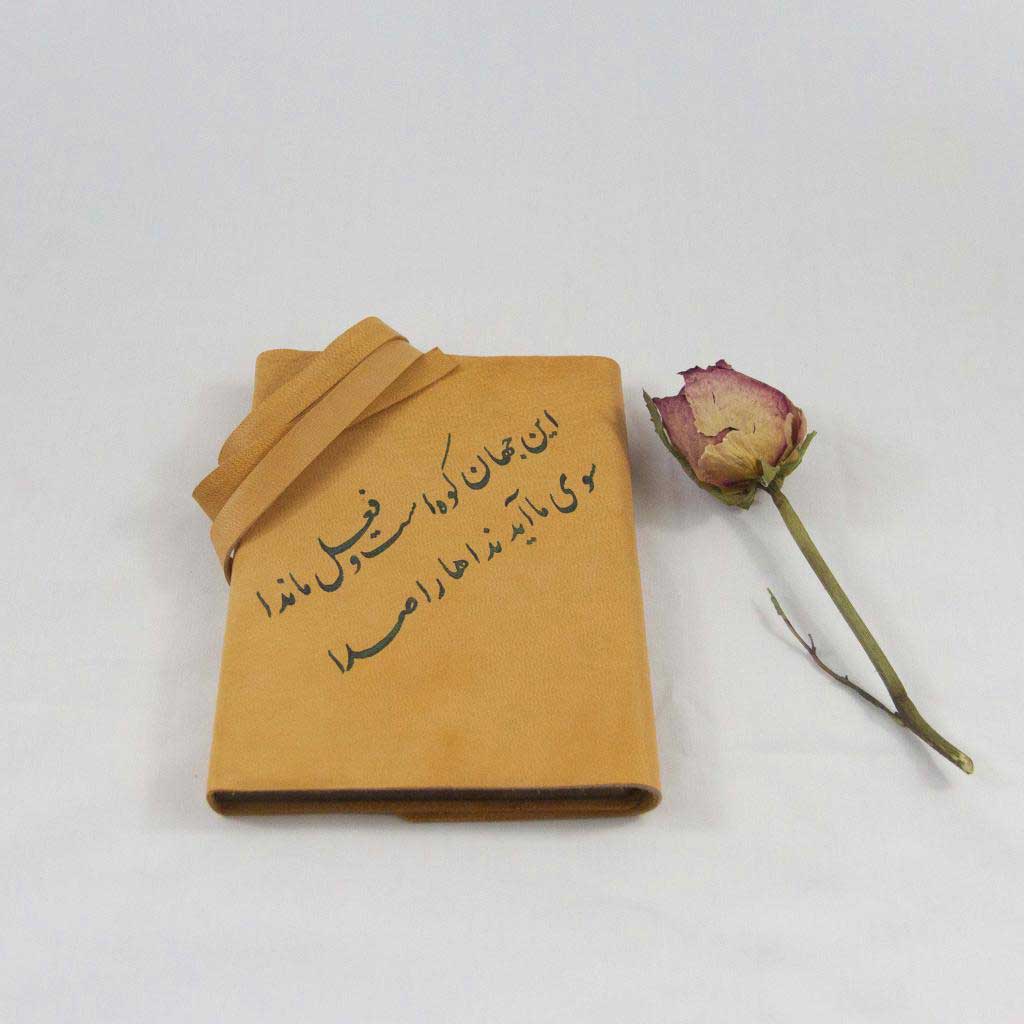 این جهان کوه است و فعل ما ندا
سوی ما آید نداها را صدا